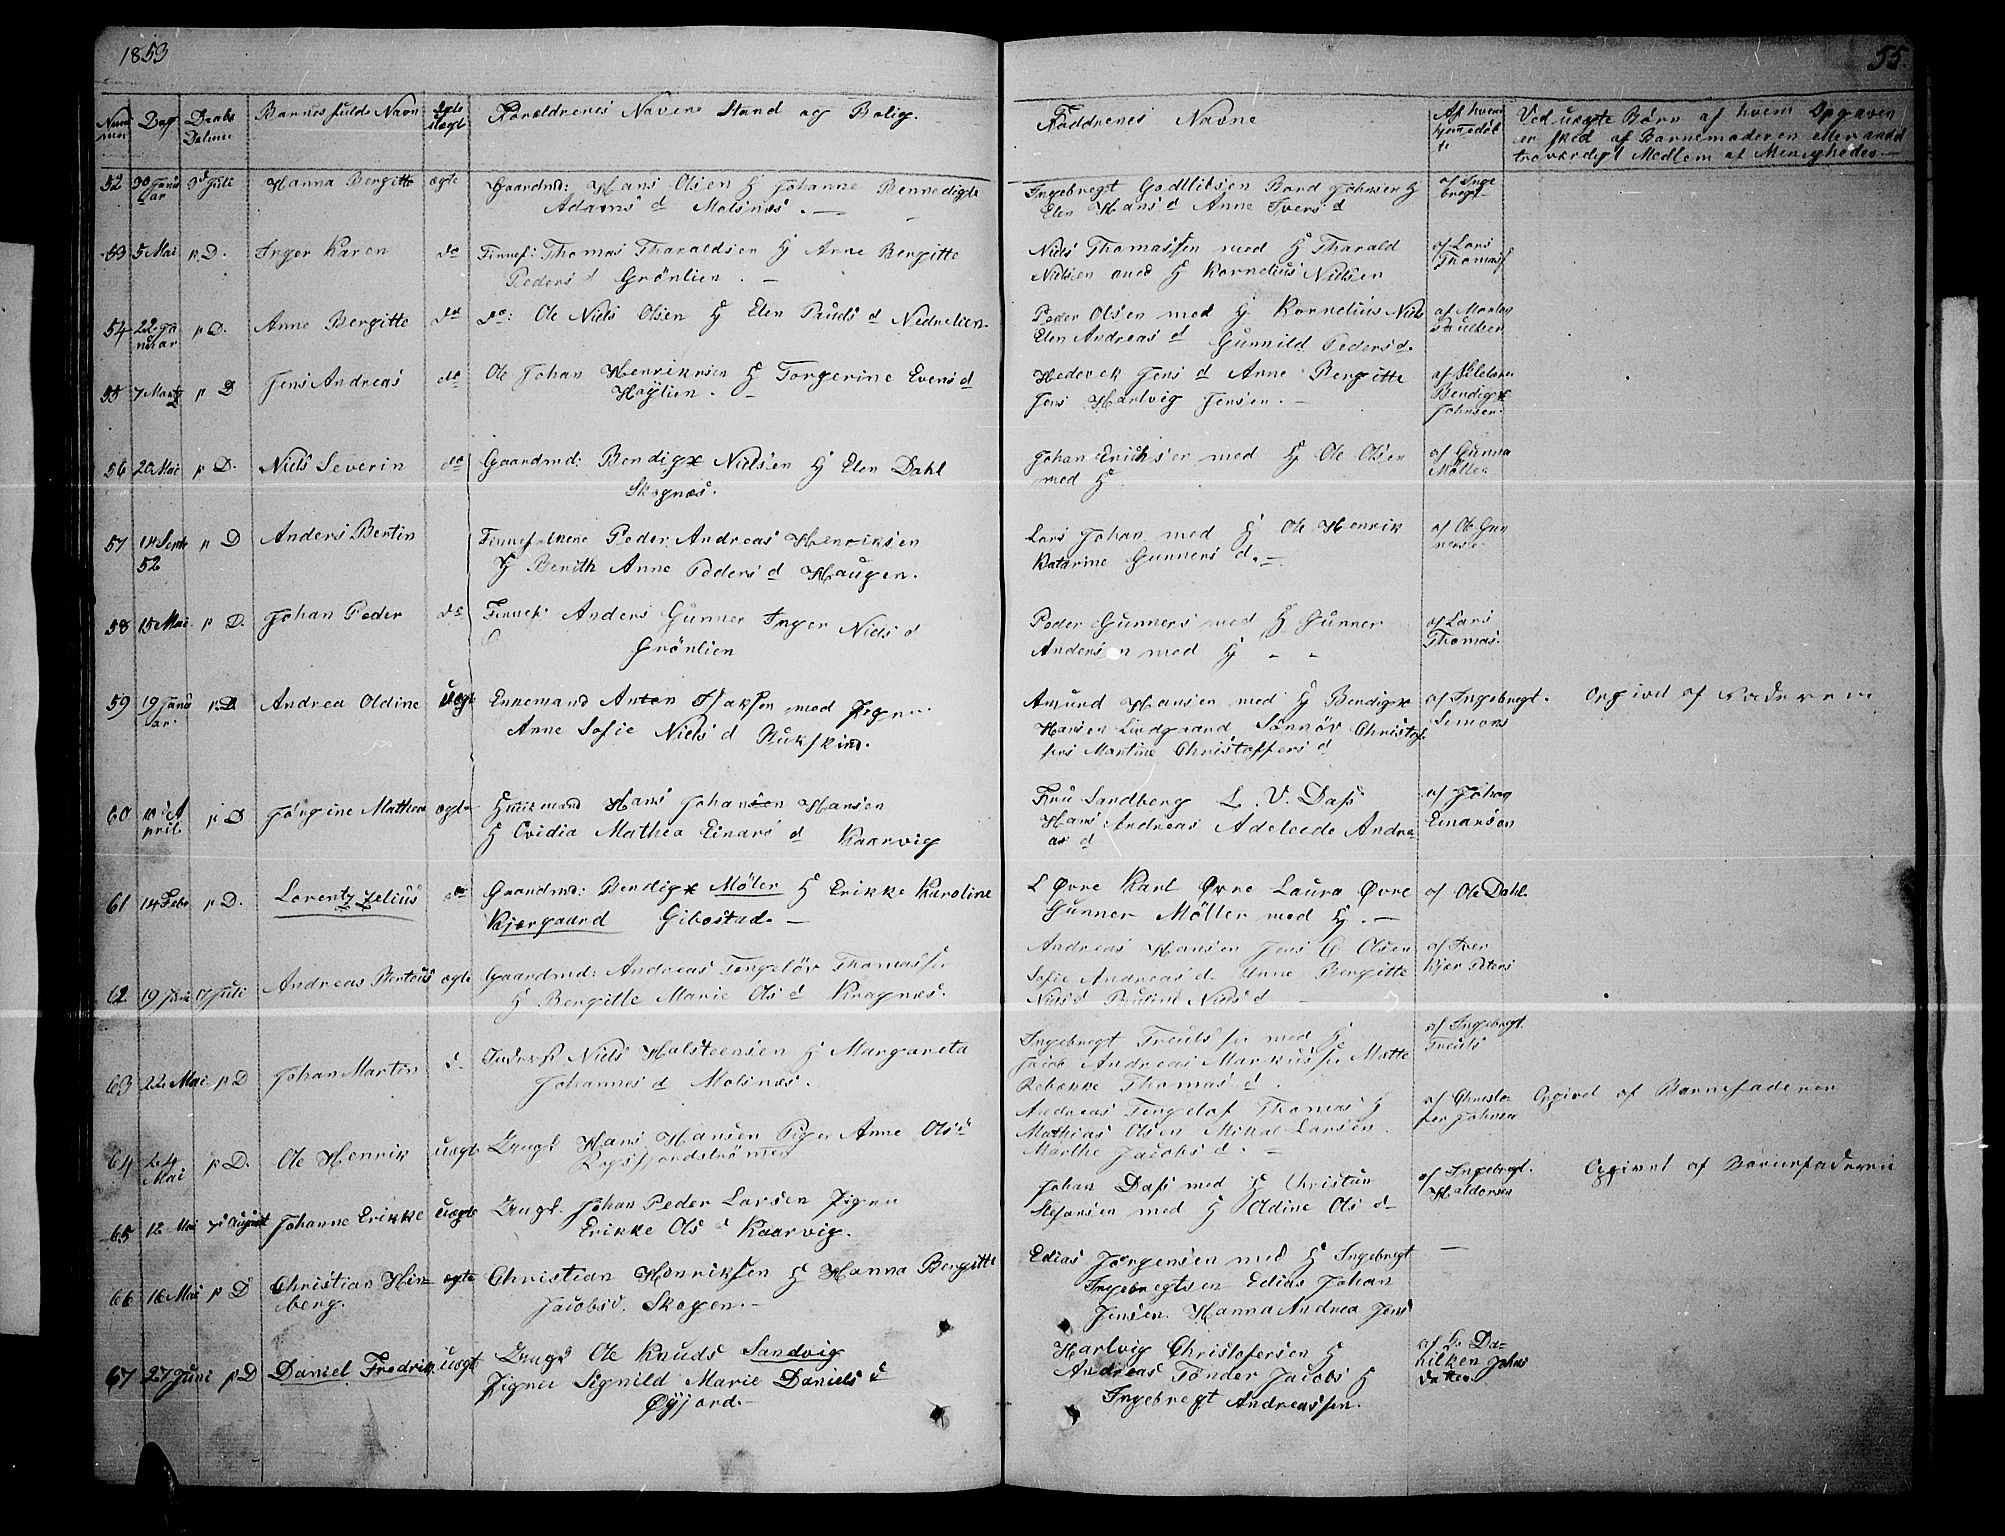 1853
55.
Num mer
Dag
Daabs Datume
Barnes fulde Navn
Ægte Uægt
Forældrenes Navne Stand og Bolig.
Faddrenes Navne
Af hvem hjemmedöbt
Ved uægte Börn af hvem Opgaven
er sked af Barnemoderen eller andet
troværdigt Medlem af Menigheden
52 30 Januar 3d Juli Hanna Bergitte ægte Gaardmd: Hans Olsen H Johanne Bennedigte
Adams d Molsnæs.
Ingebregt Godtlibsen Bord Johnsen H
Elen Hans d Anne Ivers d
af Inge
bregt
53 5 Mai p. D. Inger Karen do Finnef: Thomas Tharaldsen H Anne Bergitte
Peders d Grönlien.
Niels Thomassen med H Tharald
Nielsen med H Kornelius Nielsen
af Lars
Thomas
54 22 Januar p D. Anne Bergitte do do: Ole Niels Olsen H Elen Pouls d Nedrelien.
Peder Olsen med H Kornelius Niels
Elen Andreas d Gunnild Peders d.
af Morten
Paulsen
55 7 Marts p D Jens Andreas do Ole Johan Henriksen H Torgerine Evens d
Höylien.
Hedevek Jens d Anne Bergitte
Jens Hartvig Jensen.
af
Bendigx
Johnsen.
56 20 Mai p D. Niels Severin do Gaardmd: Bendigx Nielsen H Elen Dahl
Skognæs.
Johan Ericksen med H Ole Olsen
med H
af Gunna
Möller
57 14 Septr 52 p D Anders Bertin Finnef Peder Andreas Henriksen
H Berith Anne Peders d Haugen.
Lars Johan med H Ole Henrik
Katarine Gunners d.
af Ole Gun
ners
58 15 Mai. p D. Johan Peder do Finnef Anders Gunner Inger Niels d
Grönlien
Peder Gunners med H Gunner
Andersen med H
af Lars
Thomas.
59 19 Januar. p. D. Andrea Oldine Uægt Ennemand Anton Isaksen med Pigen
Anne Sofie Niels d Rukskind.
Amund Hansen med H Bendigx
Hansen Lindgaard Sönnöv Christof
fers Martine Christoffers d
af Ingebregt.
Simons
Opgivet af Faderen
60 10d A
pril. p D Jörgine Mathea ægte Huusmand Hans Johansen Hansen
H Ovidia Mathea Einars d Kaarvig
Fru Sandberg L. V. Dass
Hans Andreas Adeleede Andre
as d
af Johan
Einarsen
61 14 Febr p D. Lorentz Zelius do Gaardmd: Bendigx Möler H Erikke Karoline
Kjergaard Gibostad.
L Övre Karl Övre Laura Övre
Gunner Möller med H.
af Ole Dahl.
62 19 Juni 17 Juli Andreas Berteus ægte Gaardmd: Andreas Tengelöv Thomassen
H Bergitte Marie Ols d Kragnæs.
Andreas Hansen Jens C Olsen
Sofie Andreas d. Anne Bergitte
Niels d Pauline Niels d
af Iver
Kjær Peters
63 22 Mai p D Johan Martin d. Niels Halsteensen H Margareta
Johannes d Molsnæs.
Ingebregt med H
Jacob Andreas Markussen Mette
Rebekke Thomas d.
af Ingebregt
64 24
Mai p D. Ole Henrik uægt Ungk Hans Hansen Pigen Anne Ols d
Rossfjordströmen
Andreas Tengelof Thomas H
Mathias Olsen Mikal Larsen.
Marthe Jacobs d.
af Christo
fer Johnsen
Opgivet af Barnefaderen
65 12 Mai 7d August Johanne Erikke uægte Ungk. Johan Peder Larsen Pigen
Erikke Ols d Kaarvig.
Johan Dass med H Christian
Stefansen med H Oldine Ols d
af Ingebregt.
Haldorsen
Opgivet af Barnefaderen
66 16 Mai p D Christian Hin-
berg. ægte Christian Henriksen H Hanna Bergitte
Jacobsd. Skogen.
Edias Jörgensen med H Ingebregt
Ingebregtsen Edias Johan
Jensen. Hanna Andrea Jens
67 27 Juni p D Daniel Fredrik uægt Ungk Ole Knuds Sandvig
Pigen Signild Marie Daniels d
Öyjord.
Hartvig Christofersen H
Andreas Tönder Jacobs H
Ingebregt Andreassen.